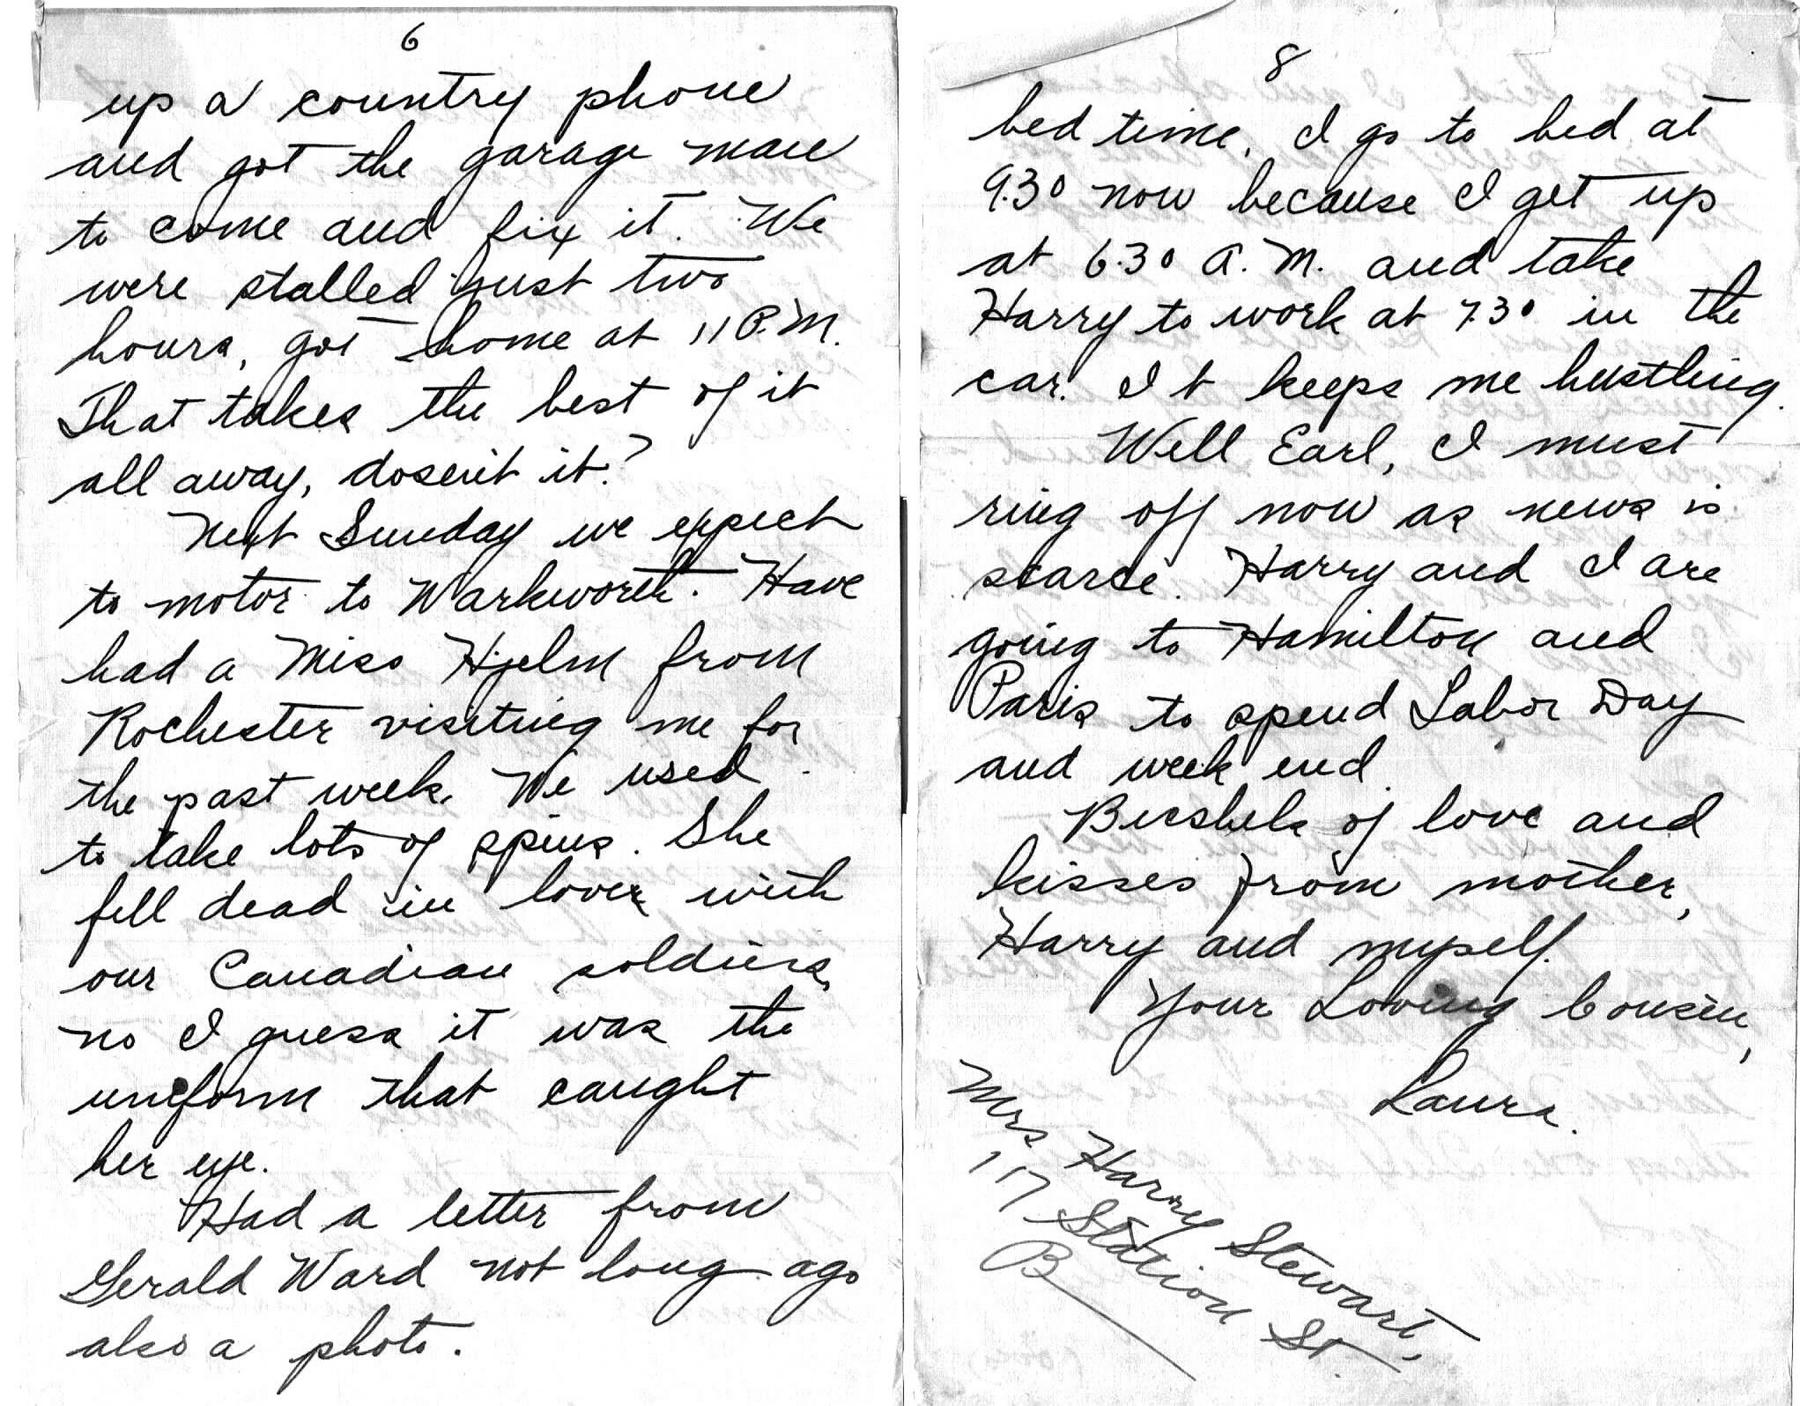 6
up a country phone
and got the garage man
to come and fix it. We
were stalled just two
hours, got home at 11 P.M.
That takes the best of it
all away, dosent it?
Next Sunday we expect
to motor to Warkworth. Have
had a Miss Hjelm from
Rochester visiting me for
the past week. We used
to take lots of spins. She
fell dead in love with
our Canadian soldiers,
no I guess it was the
uniform that caught
her eye.
Had a letter from
Gerald Ward not long ago
also a photo.
8
bed time. I go to bed at
9.30 now because I get up
at 6.30 A.M. and take
Harry to work at 7.30 in the
car. It keeps me hustling.
Well Earl, I must
ring off now as news is
scarce. Harry and I are
going to Hamilton and
Paris to spend Labor Day
and week end
Bushels of love and
kisses from mother,
Harry and myself.
Your Loving Cousin,
Laura.
Mrs Harry Stewart,
117 Station St.
B